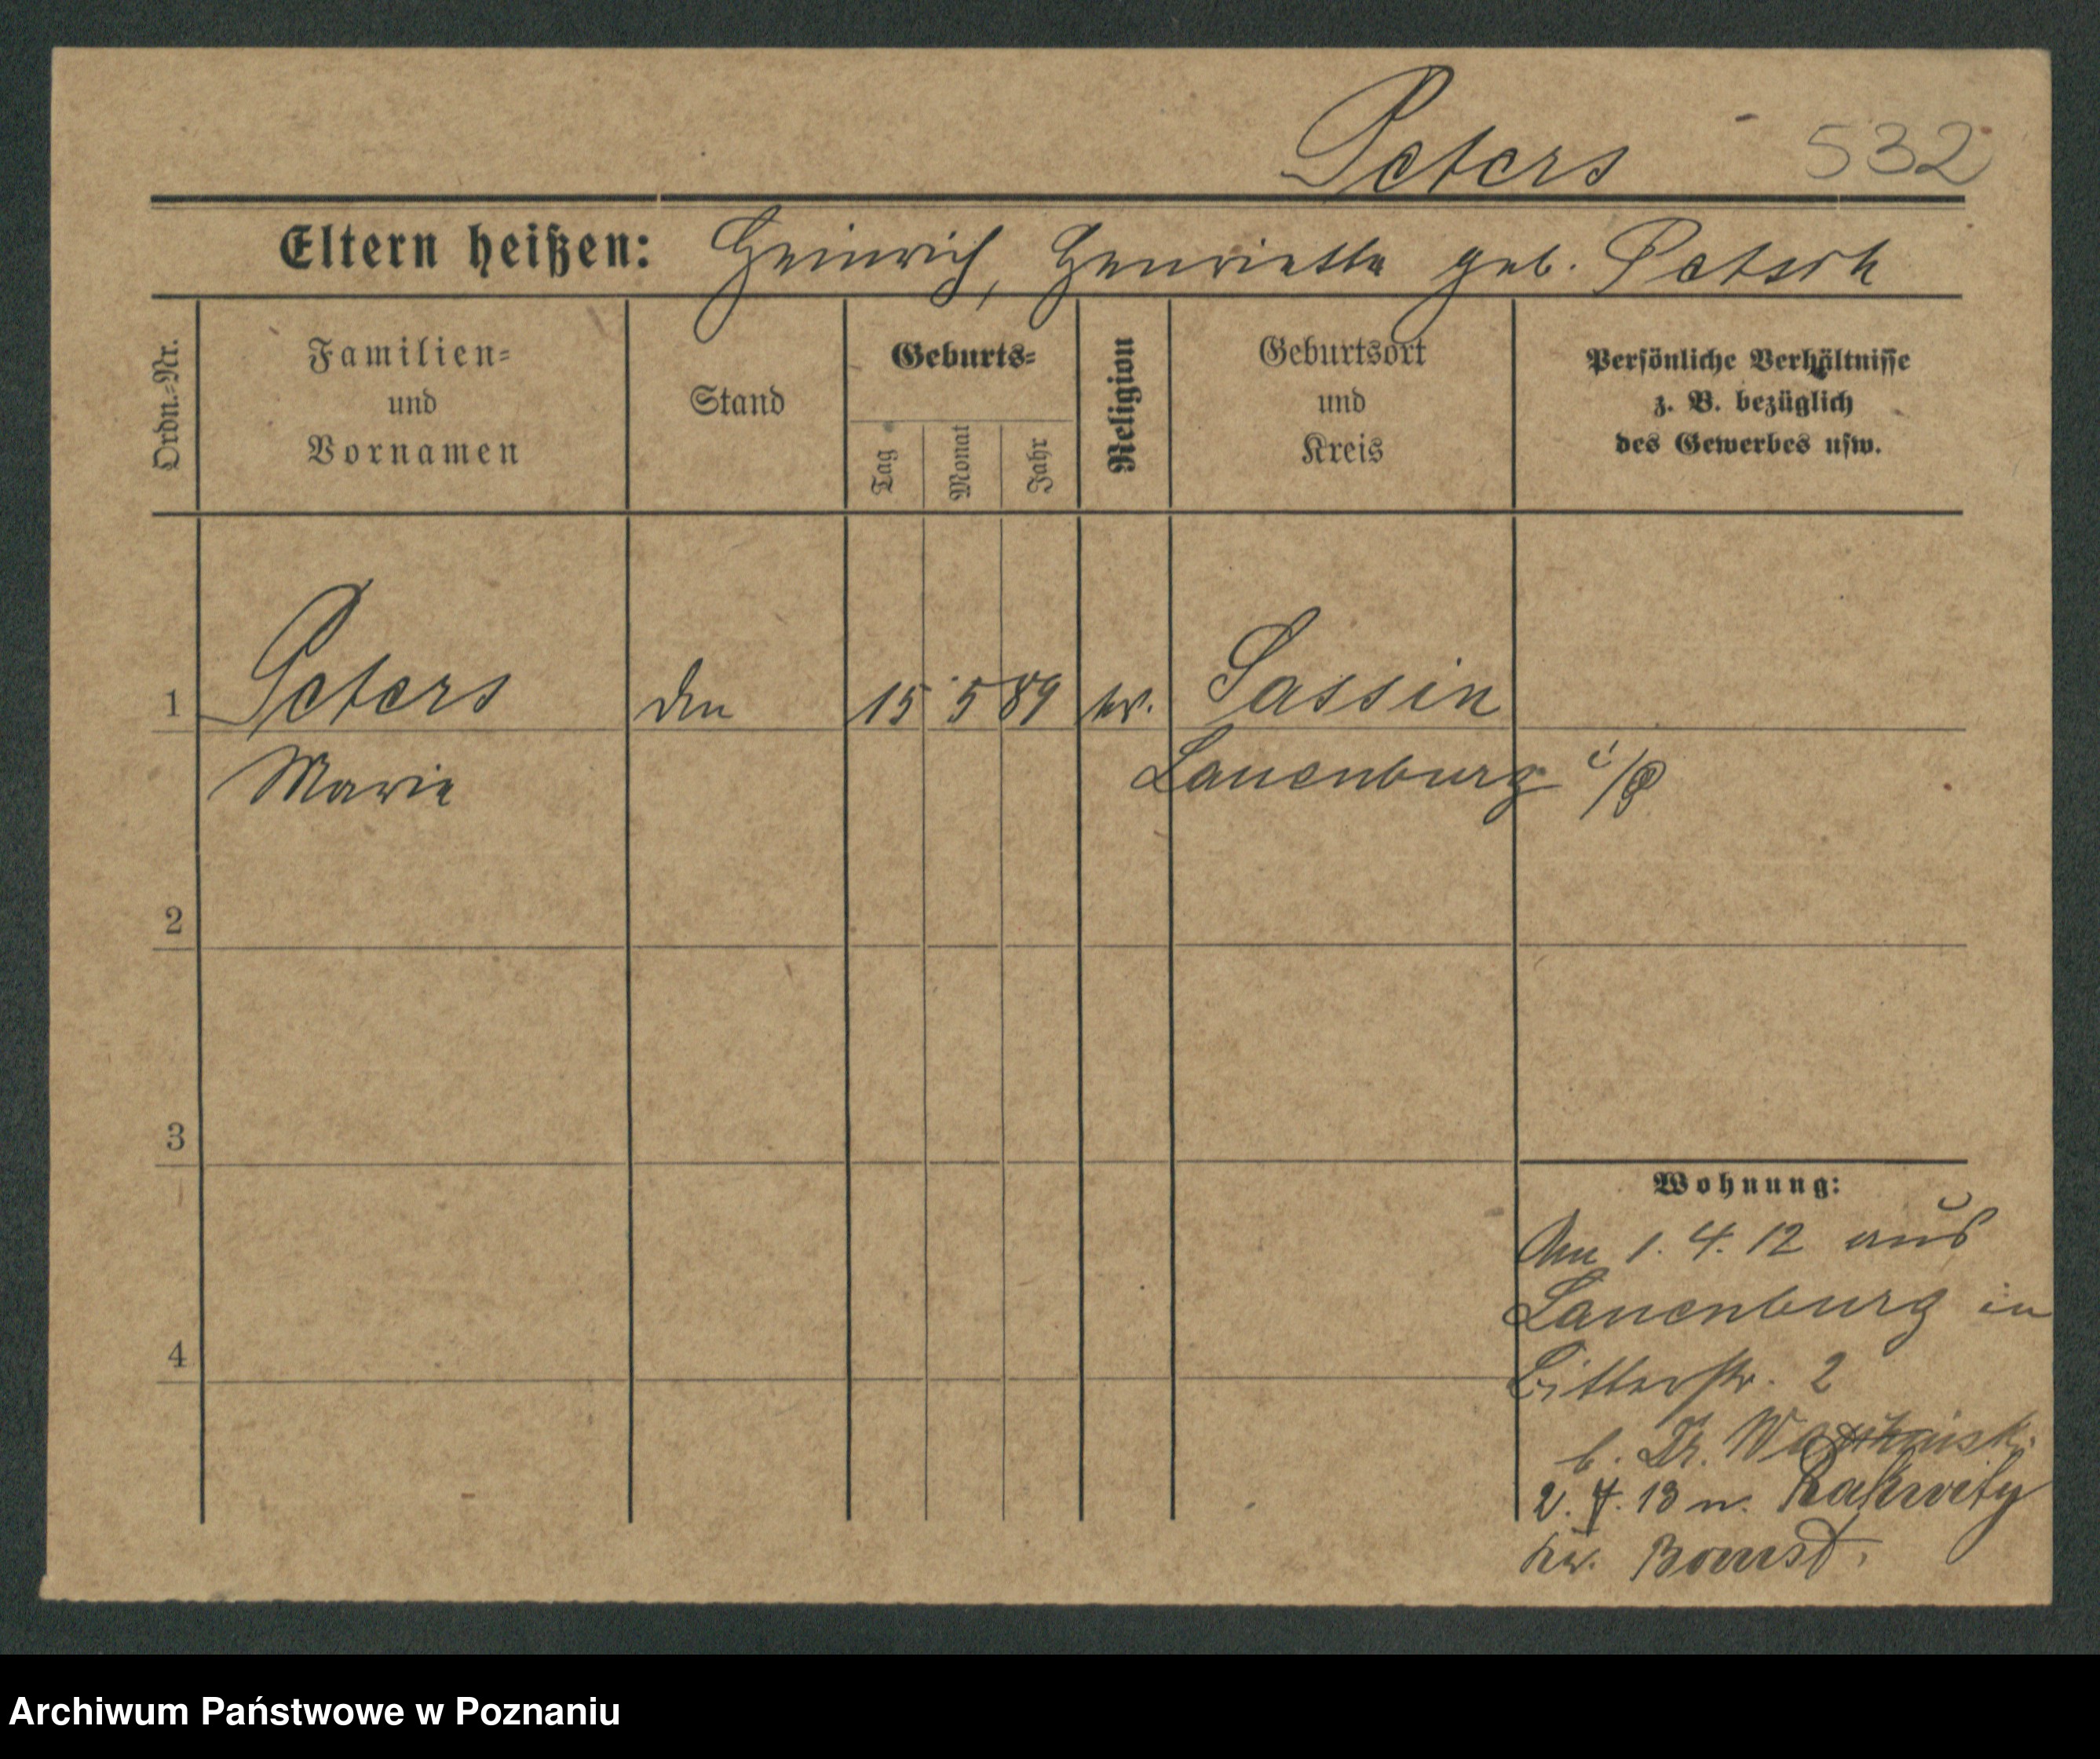 Peters 532
Eltern heißen: Heinrich, Henriette geb. Petsch
Ordn.-Nr.
Familien-
und
Vornamen
Stand
Geburts-
Tag
Monat
Jahr
Religion
Geburtsort
und
Kreis
Persönliche Verhältnisse
z. B. bezüglich
des Gewerbes usw.
1 Peters 15 5 89 Sassin
Marie Lauenburg i/P
2
3
4
Wohnung:
Am 1. 4. 12 aus
Lauenburg in
Ritterstr. 2
b. Dr.
2. 7. 13 n. Rakwitz
Kr. Bomst.
Archiwum Państwowe w Poznaniu